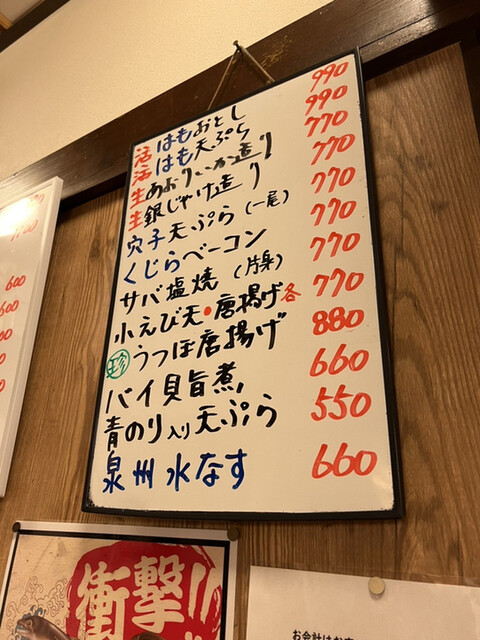 活はもおとし 990
活はも天ぷら 990
生あおりいか造り 770
生銀じゃけ造り 770
穴子天ぷら(一尾) 770
くじらベーコン 770
サバ塩焼(片身) 770
小えび天・唐揚げ各 770
珍うつぼ唐揚げ 880
バイ貝旨煮 660
青のり入り天ぷら 550
泉州水なす 660
600
衝撃!!
お会計はお